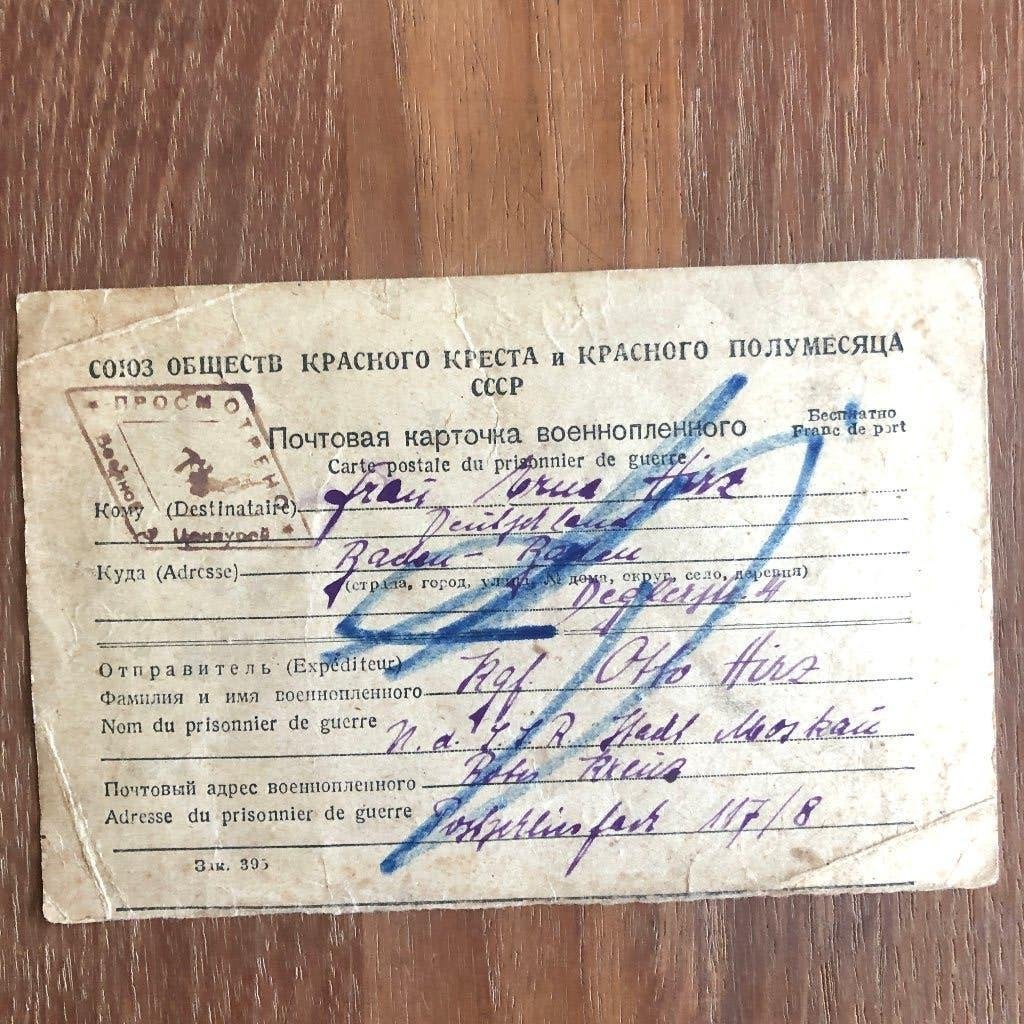 СОЮЗ ОБЩЕСТВ КРАСНОГО КРЕСТА и КРАСНОГО ПОЛУМЕСЯЦА
СССР
ПРОСМОТРЕНО
Военной
Цензурой
Почтовая карточка военнопленного
Бесплатно
Carte postale du prisonnier de guerre
Franc de port
Кому (Destinataire) Frau Erna Hirz
Deutschland
Куда (Adresse) Baden-Baden
(страна, город, улица, № дома, округ, село, деревня)
4
Отправитель (Expéditeur)
Фамилия и имя военнопленного Kgf Otto Hirz
Nom du prisonnier de guerre
Stadt Moskau
Почтовый адрес военнопленного Rotes Kreuz
Adresse du prisonnier de guerre Postschliessfach 117/8
Зак. 395